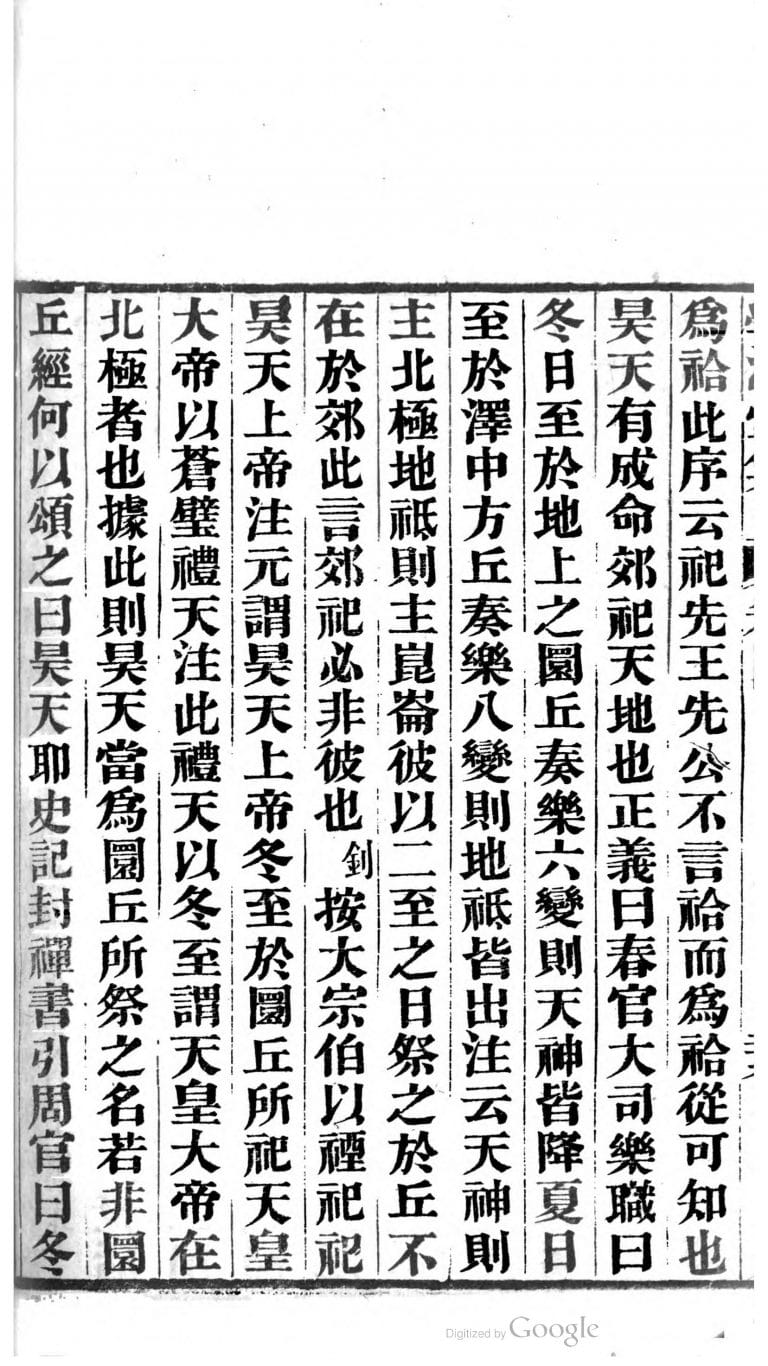 爲祫此序云祀先王先公不言祫而爲祫從可知也
昊天有成命郊祀天地也正義曰春官大司樂職曰
冬日至於地上之圜丘奏樂六變則天神皆降夏日
至於澤中方丘奏樂八變則地祗皆出注云天神則
主北極地祗則主崑崙彼以二至之日祭之於丘不
在於郊此言郊祀必非彼也 釗按大宗伯以禋祀祀
昊天上帝注元謂昊天上帝冬至於圜丘所祀天皇
大帝以蒼璧禮天注此禮天以冬至謂天皇大帝在
北極者也據此則昊天當爲圜丘所祭之名若非圜
丘經何以頌之曰昊天耶史記封禪書引周官曰冬
Digitized by Google